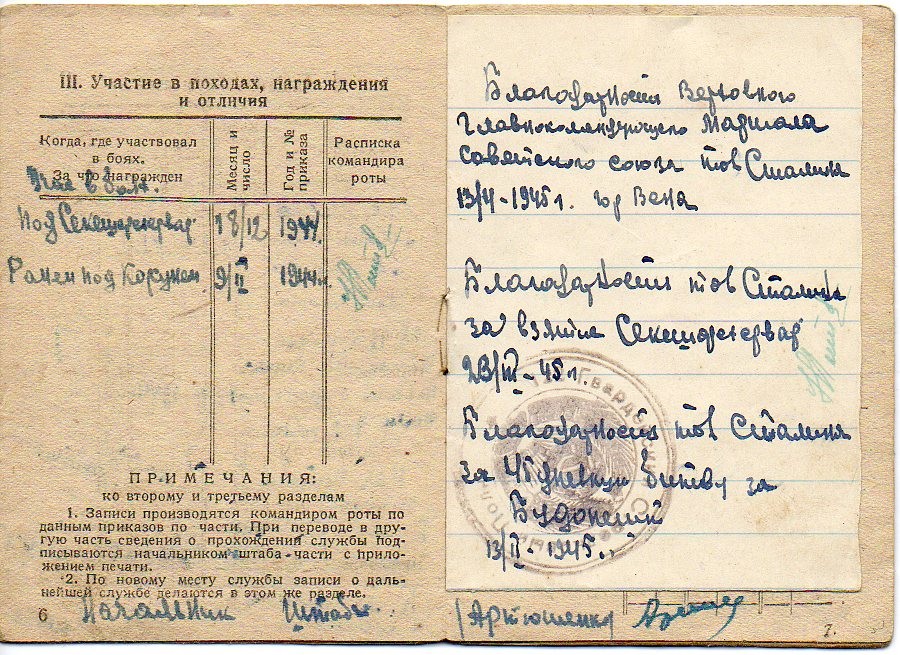 III. Участие в походах, награждения
и отличия
Когда, где участвовал
в боях.
За что награжден
Месяц и
число
Год и №
приказа
Расписка
командира
роты
под Секешфехервар 18/12 1944.
Ранен под 9/II 1944г.
ПРИМЕЧАНИЯ:
ко второму и третьему разделам
1. Записи производятся командиром роты по
данным приказов по части. При переводе в дру-
гую часть сведения о прохождении службы под-
писываются начальником штаба части с прило-
жением печати.
2. По новому месту службы записи о даль-
нейшей службе делаются в этом же разделе.
6
Начальник штаба
Благодарность Верховного
Главнокомандующего Маршала
Советского союза тов Сталина
1945г. гор Вена
Благодарность тов Сталина
за взятие Секешфехервар
23/III-45г.
Благодарность тов Сталина
за битву за
Будапешт
13/II-1945г.
Гвардейск
/Артюшенко
7.